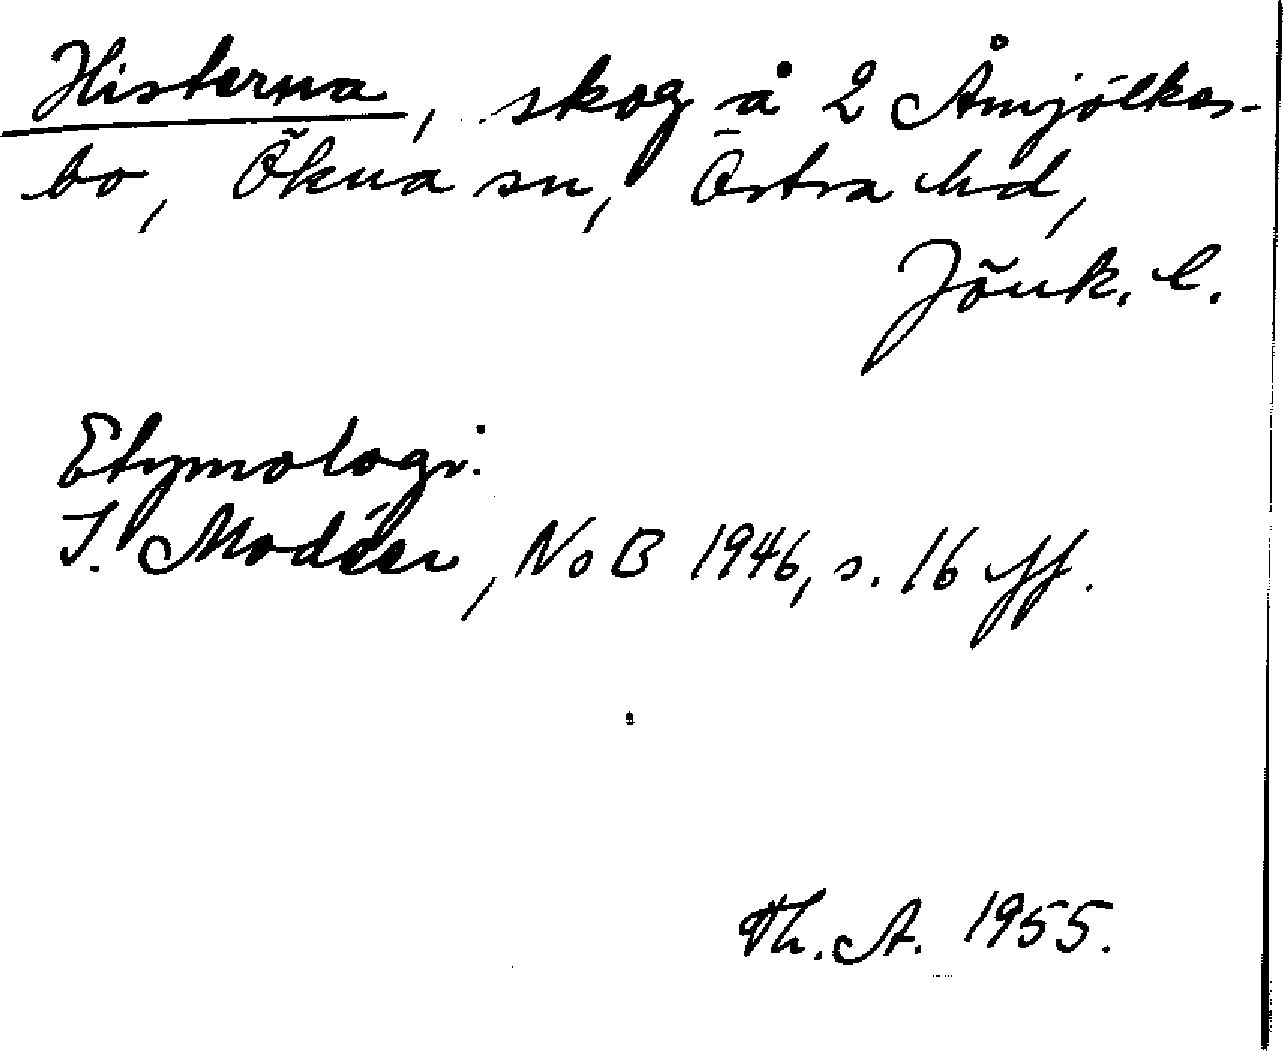 Histerna, skog å 2 Åmjölkas-
bo, Ökna sn, Östra hd,
Jönk. l.
Etymologi:
I. Modéer, NoB 1946, s. 16 ff.
Th. A. 1955.